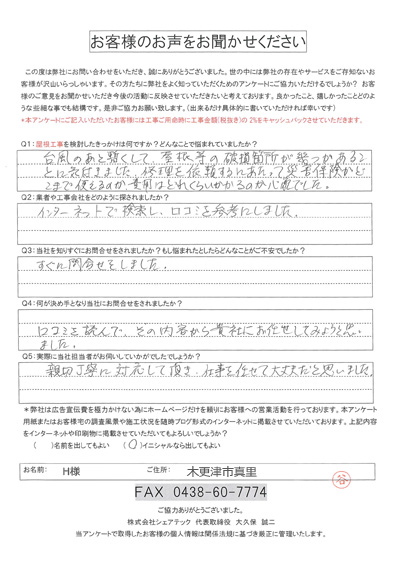 お客様のお声をお聞かせください
この度は弊社にお問い合わせをいただき、誠にありがとうございました。世の中には弊社の存在やサービスをご存知ないお
客様が沢山いらっしゃいます。その方たちに弊社をよく知っていただくためのアンケートにご協力いただけるでしょうか？ お客
様のご意見をお聞かせいただき今後の活動に反映させていただきたいと考えております。良かったこと、嬉しかったことどのよ
うな些細な事でも結構です。是非ご協力お願い致します。（出来るだけ具体的に書いていただければ幸いです）
*本アンケートにご記入いただいたお客様には工事ご用命時に工事金額（税抜き）の2%をキャッシュバックさせていただきます。
Q1：屋根工事を検討したきっかけは何ですか？どんなことで悩まれていましたか？
台風のあと暫くして、屋根等の破損箇所が幾つかあるこ
とに気付きました。修理を依頼するにあたって災害保険がど
こまで使えるのか費用はどれくらいかかるのか心配でした。
Q2：業者や工事会社をどのように探されましたか？
インターネットで検索し、口コミを参考にしました。
Q3：当社を知りすぐにお問合せをされましたか？もし悩まれたとしたらどんなことがご不安でしたか？
すぐに問合せをしました。
Q4：何が決め手となり当社にお問合せをされましたか？
口コミを読んで、その内容から貴社にお任せしてみようと思い
ました。
Q5：実際に当社担当者がお伺いしていかがでしたでしょうか？
親切丁寧に対応して頂き、仕事を任せて大丈夫だと思いました。
＊弊社は広告宣伝費を極力かけない為にホームページだけを頼りにお客様への営業活動を行っております。本アンケート
用紙またはお客様宅の調査風景や施工状況を随時ブログ形式のインターネットに掲載させていただいております。上記内容
をインターネットや印刷物に掲載させていただいてもよろしいでしょうか？
（　）名前を出してもよい （○）イニシャルなら出してもよい
お名前： H様 ご住所： 木更津市真里
谷
FAX 0438-60-7774
ご協力ありがとうございました。
株式会社シェアテック 代表取締役 大久保 誠二
当アンケートで取得したお客様の個人情報は関係法規に基づき厳正に管理いたします。